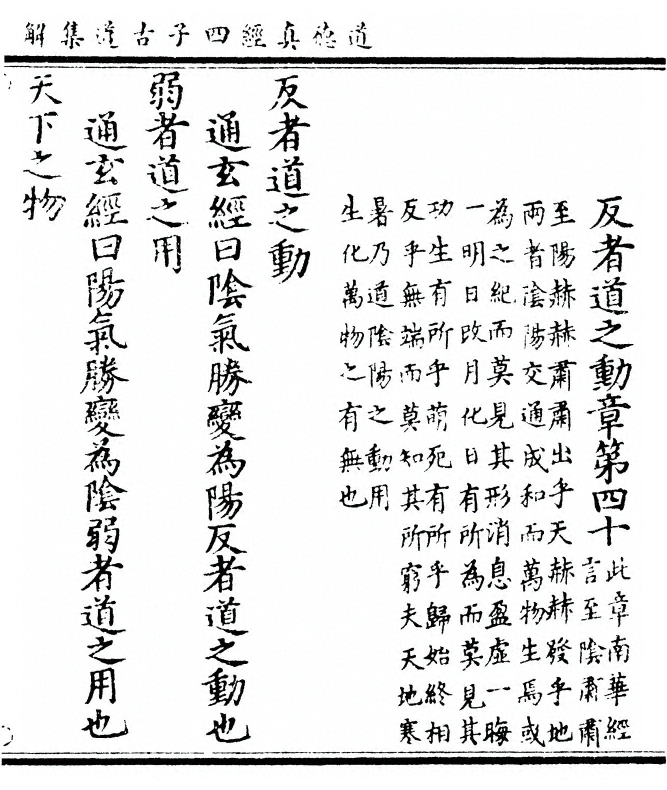 道德真經四子古道集解
反者道之動章第四十
此章南華經
言至陰肅肅
至陽赫赫肅肅出乎天赫赫發乎地
兩者陰陽交通成和而萬物生焉或
為之紀而莫見其形消息盈虛一晦
一明日改月化日有所為而莫見其
功生有所乎萌死有所乎歸始終相
反乎無端而莫知其所窮夫天地寒
暑乃道陰陽之動用
生化萬物之有無也
反者道之動
通玄經曰陰氣勝變為陽反者道之動也
弱者道之用
通玄經曰陽氣勝變為陰弱者道之用也
天下之物